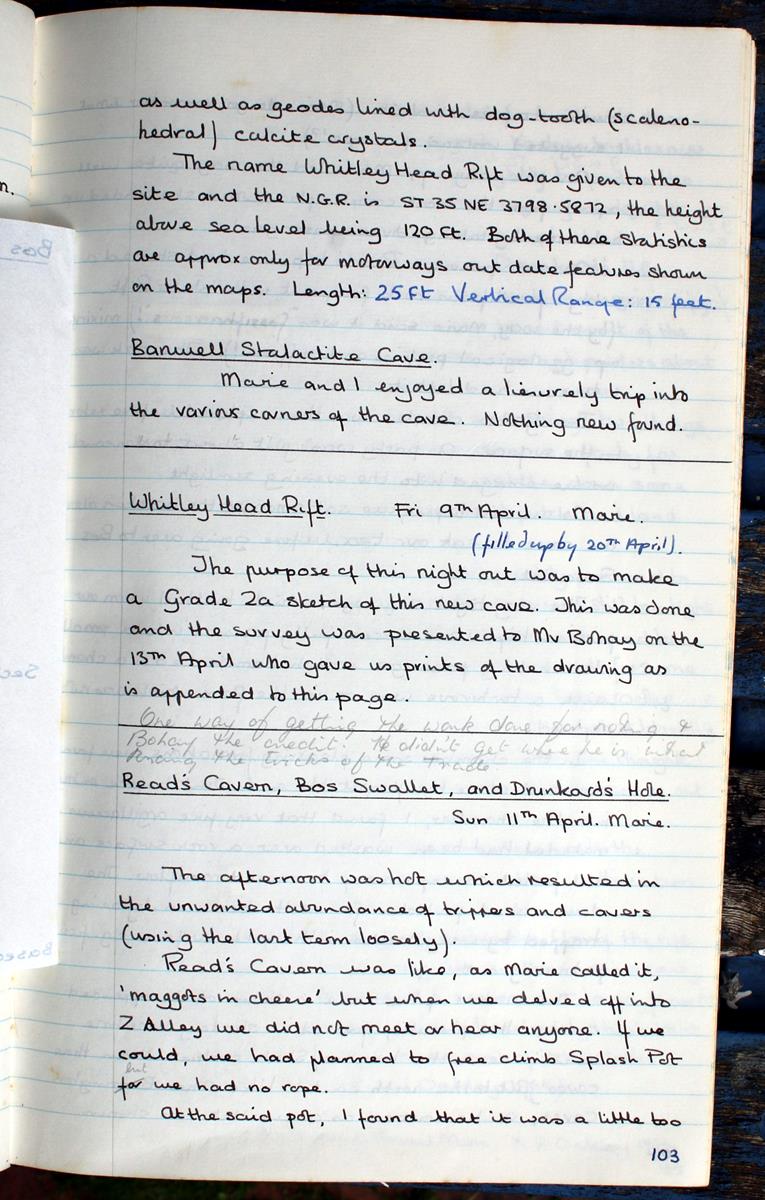 as well as geodes lined with dog-tooth (scaleno-
hedral) calcite crystals.
The name Whitley Head Rift was given to the
site and the N.G.R. is ST 35 NE 3798·5872, the height
above sea level being 120 Ft. Both of these statistics
are approx only for motorways out date features shown
on the maps. Length: 25 Ft Vertical Range: 15 feet.
Banwell Stalactite Cave.
Marie and I enjoyed a liesurely trip into
the various corners of the cave. Nothing new found.
Whitley Head Rift. Fri 9th April. Marie.
(filled up by 20th April).
The purpose of this night out was to make
a Grade 2a sketch of this new cave. This was done
and the survey was presented to Mr Bohay on the
13th April who gave us prints of the drawing as
is appended to this page.
One way of getting the work done for nothing &
Bohay the credit! He didn't get where he is without
the tricks of the Trade.
Read's Cavern, Bos Swallet, and Drunkard's Hole.
Sun 11th April. Marie.
The afternoon was hot which resulted in
the unwanted abundance of trippers and cavers
(using the last term loosely).
Read's Cavern was like, as Marie called it,
'maggots in cheese' but when we delved off into
Z Alley we did not meet or hear anyone. If we
could, we had planned to free climb Splash Pot
but
for we had no rope.
At the said pot, I found that it was a little too
103
n.
Bos
Sec
Based